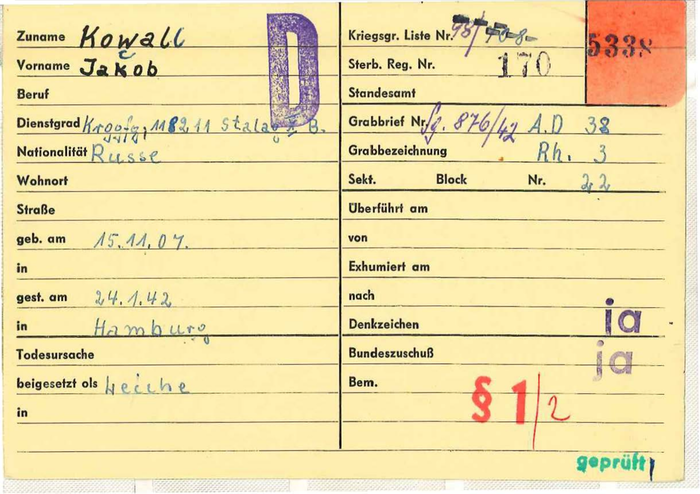 Zuname Kowall
Vorname Jakob
Beruf
Dienstgrad Krgsfg, 118211 Stalag X B.
Nationalität Russe
Wohnort
Straße
geb. am 15.11.07.
in
gest. am 24.1.42
in Hamburg
Todesursache
beigesetzt als Leiche
in
D
Kriegsgr. Liste Nr. 98/
5338
Sterb. Reg. Nr. 170
Standesamt
Grabbrief Nr. 876/42 A.D 38
Grabbezeichnung Rh. 3
Sekt. Block Nr. 22
Überführt am
von
Exhumiert am
nach
Denkzeichen ja
Bundeszuschuß ja
Bem. § 1/2
geprüft